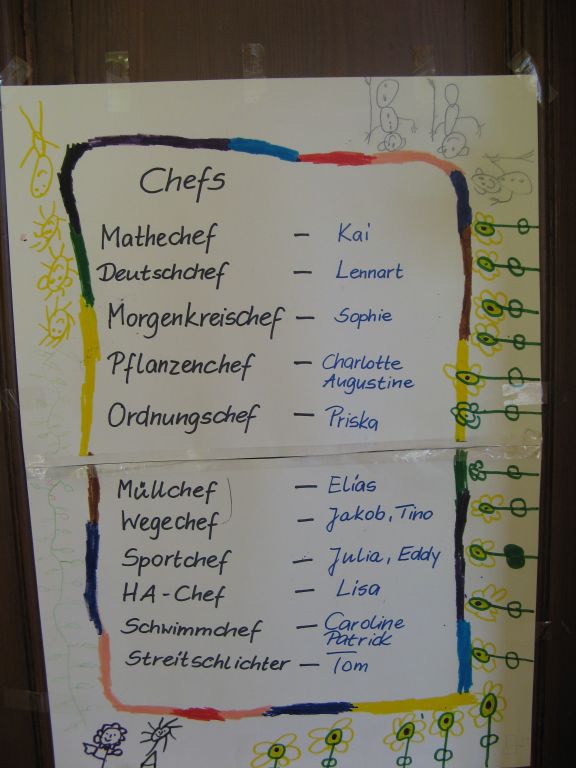 Chefs
Mathechef – Kai
Deutschchef – Lennart
Morgenkreischef – Sophie
Pflanzenchef – Charlotte
Augustine
Ordnungschef – Priska
Müllchef – Elias
Wegechef – Jakob, Tino
Sportchef – Julia, Eddy
HA-Chef – Lisa
Schwimmchef – Caroline
Patrick
Streitschlichter – Tom